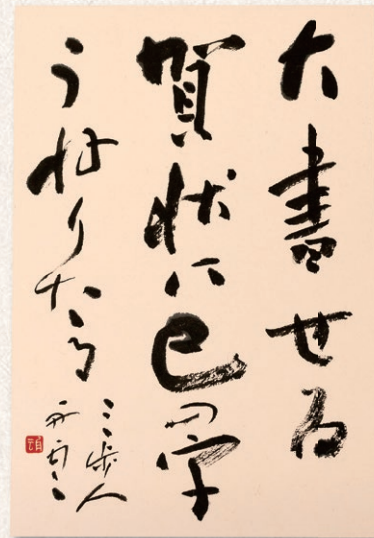 大書せる
賀状に巳の字
うねりたる
三歩人